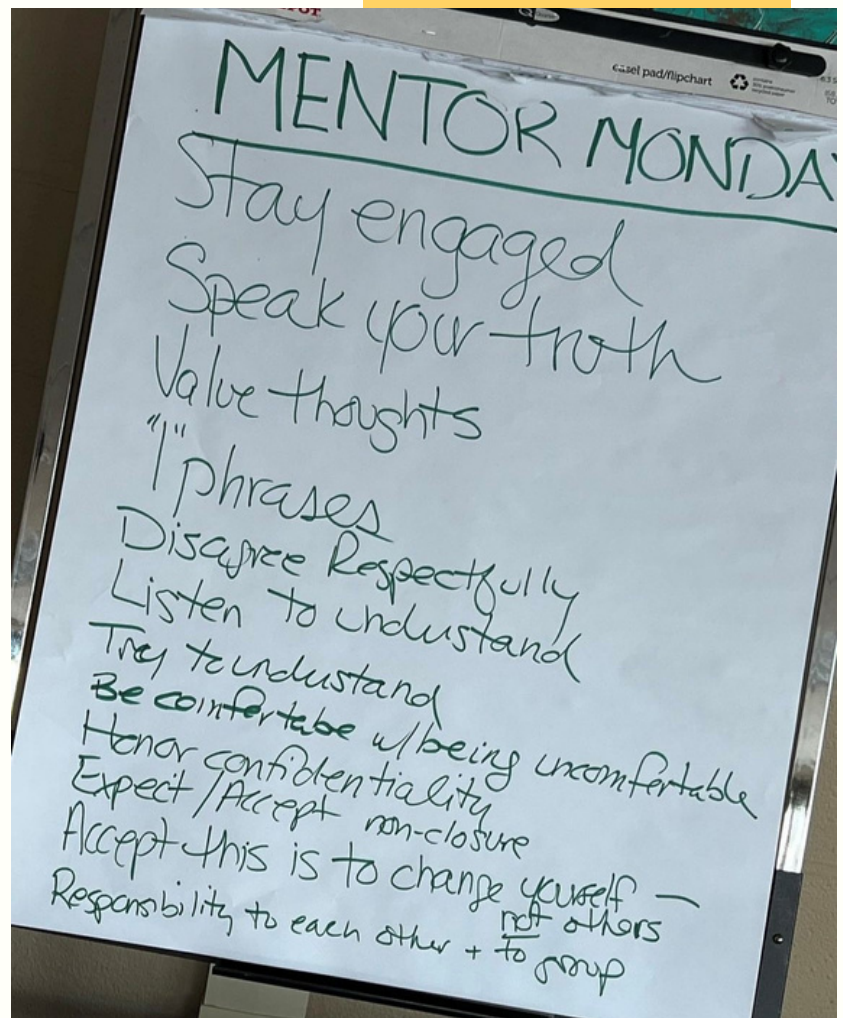 easel pad/flipchart
MENTOR MONDA
Stay engaged
Speak your truth
Value thoughts
"I" phrases
Disagree Respectfully
Listen to undustand
Try to undustand
Be comfertabe w/ being uncomfertable
Honor confidentiality
Expect/Accept non-closure
Accept this is to change yourself —
not others
Responsibility to each other + to group